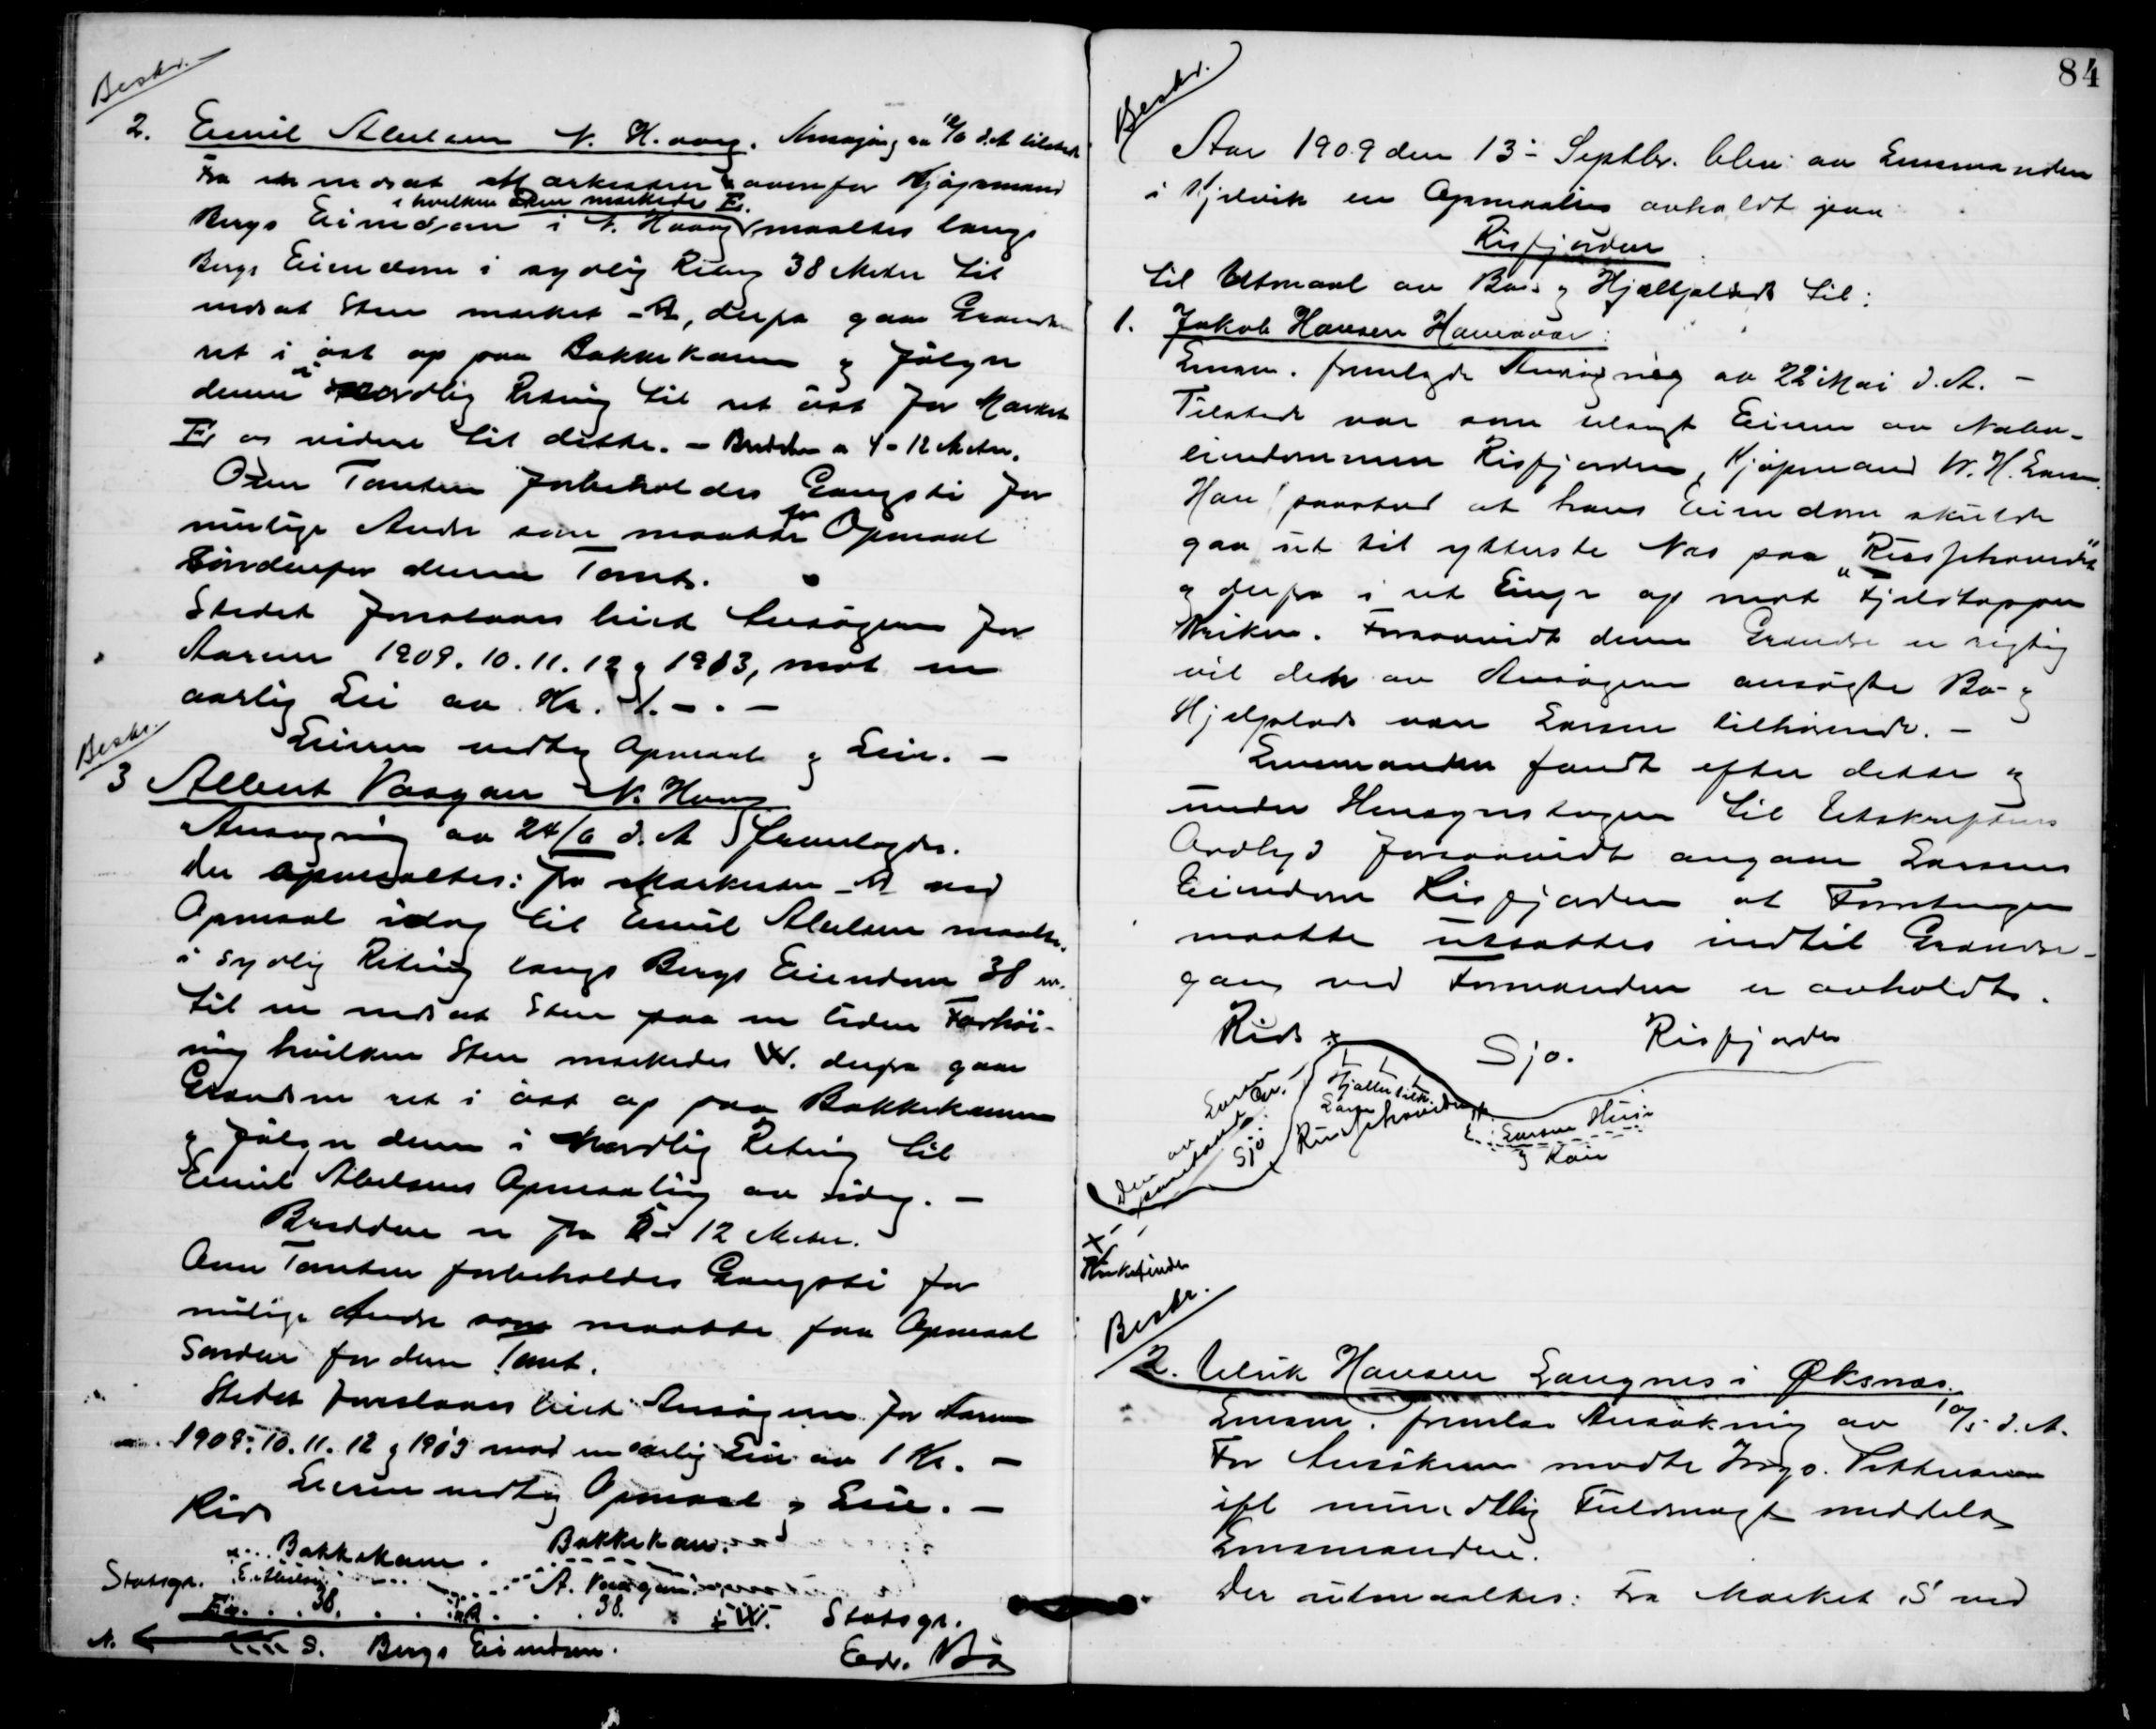 Beskr.
2. Emil Abelsen N. H.vaag. Ansøgning av 12/6 d.A.
Fra en nedsat sten ovenfor Kjøpmand
i hvilken Sten merkedes E.
Bergs Eiendom i N. Hvaag maaltes langs
Bergs Eiendom i sydlig Retng 38 Meter til
nedsat Sten merket A, derfra gaar Grændsen
ret i øst op paa Bakkekammen og følger
denne i nordlig Retning til ret øst for Merket
E og videre til dette. – Bredden er 4-12 Meter.
Over Tomten forbeholdes Gangsti for
mulige Andre som maatte faa Opmaal
søndenfor denne Tomt.
Stedet foreslaaes leiet Ansøgeren for
Aarene 1909. 10. 11. 12 og 1913, mot en
aarlig Leie av Kr. 1. – . –
Leieren vedtog Opmaal og Leie. –
Beskr.
3 Albert Vaagan N. Hvaag
Ansøgning av 24/6 d. A fremlagdes.
Der opmaaltes: fra Merkesten A ved
Opmaal idag til Emil Abelsen maaltes
i sydlig Retning langs Bergs Eiendom 38 m.
til en nedsat Sten paa en liden Forhøi-
ning hvilken Sten merkedes W. derfra gaar
Grændsen ret i øst op paa Bakkekammen
og følger denne i Nordlig Retning til
Emil Abelsens Opmaaling av idag. –
Bredden er fra 5-12 Meter.
Over Tomten forbeholdes Gangsti for
mulige Andre som maatte faa Opmaal
Sønden for denne Tomt.
Stedet foreslaaes leiet Ansøgeren for Aarene
1909. 10. 11. 12 og 1913 mod en aarlig Leie av 1 Kr. –
Leieren vedtog Opmaal og Leie. –
Rids
Bakkekam. Bakkekam.
Statsgr. E. Abelsen A. Vaagan
E. 38. A 38. W. Statsgr.
N. S. Bergs Eiendom.
Edv. Bø
84
Beskr.
Aar 1909 den 13de Septbr. blev av Lensmanden
i Kjelvik en Opmaaling avholdt paa
Risfjorden
til Utmaal av Bo- og Hjælplads til:
1. Jakob Hansen Havnevær:
Lensm. fremlagde Ansøgning av 22 Mai d. A. –
Tilstede var som Eieren av Nabo-
eiendommen Risfjorden, Kjøpmand W. H. Larsen.
Han paastod at hans Eiendom skulde
gaa ut til ytterste Nes paa "Risfjhovedet"
og derfra i ret Linje op mot Fjeldtoppen
Kriken. Forsaavidt denne Grændse er rigtig
vil det av Ansøgeren ansøgte Bo- og
Hjelplads være Larsen tilhørende. –
Lensmanden fandt efter dette og
under Hensyntagen til Utskriftens
Ordlyd forsaavidt angaar Larsens
Eiendom Risfjorden at Forretningen
maatte utsættes indtil Grændse-
gang ved Formanden er avholdt.
Rids Sjø. Risfjorden
Larsen Hus
Sjø
2. Ulrik Hansen Langnes i Øksnes.
Beskr.
Lensm. fremla Ansøkning av 10/5 d.A.
For Ansøkeren mødte Ingv. Pettersen
ifl mundtlig Fuldmagt meddelt
Lensmanden.
Der utmaaltes: Fra Merket S ved